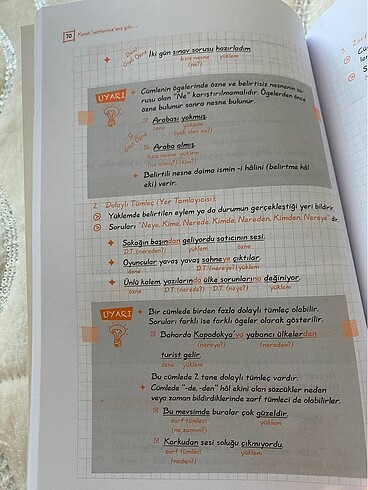 70 Kendi notlarıma'mış gibi...
(Ben)
Gizli Özne İki gün sınav sorusu hazırladım.
b.siz nesne yüklem
(ne?)
UYARI
Cümlenin ögelerinde özne ve belirtisiz nesnenin so-
rusu olan "Ne" karıştırılmamalıdır. Ögelerden önce
özne bulunur sonra nesne bulunur.
Arabası yokmuş.
özne yüklem
(yok olan ne?)
O
Gizli Özne
Araba almış.
b.siz nesne yüklem
(ne almış?) (kim?)
Belirtili nesne daima ismin -i hâlini (belirtme hâl
eki) verir.
2. Dolaylı Tümleç (Yer Tamlayıcısı):
Yüklemde belirtilen eylem ya da durumun gerçekleştiği yeri bildirir.
Soruları "Neye, Kime, Nerede, Kimde, Nereden, Kimden, Nereye" dir.
Sokağın başından geliyordu satıcının sesi.
D.T. (nereden?) yüklem özne
Oyuncular yavaş yavaş sahneye çıktılar.
özne D.T. (nereye?) yüklem
Ünlü kalem yazılarında ülke sorunlarına değiniyor.
özne D.T. (nerede?) D.T. (neye?) yüklem
UYARI
Bir cümlede birden fazla dolaylı tümleç olabilir.
Soruları farklı ise farklı ögeler olarak gösterilir.
Baharda Kapadokya'ya yabancı ülkelerden
(nereye?) (nereden?)
turist gelir.
özne yüklem
Bu cümlede 2 tane dolaylı tümleç vardır.
Cümlede "-de, -den" hâl ekini alan sözcükler neden
veya zaman bildirdiklerinde zarf tümleci de olabilirler.
Bu mevsimde buralar çok güzeldir.
zarf tümleci yüklem
(ne zaman?)
Korkudan sesi soluğu çıkmıyordu.
zarf tümleci yüklem
(neden?)